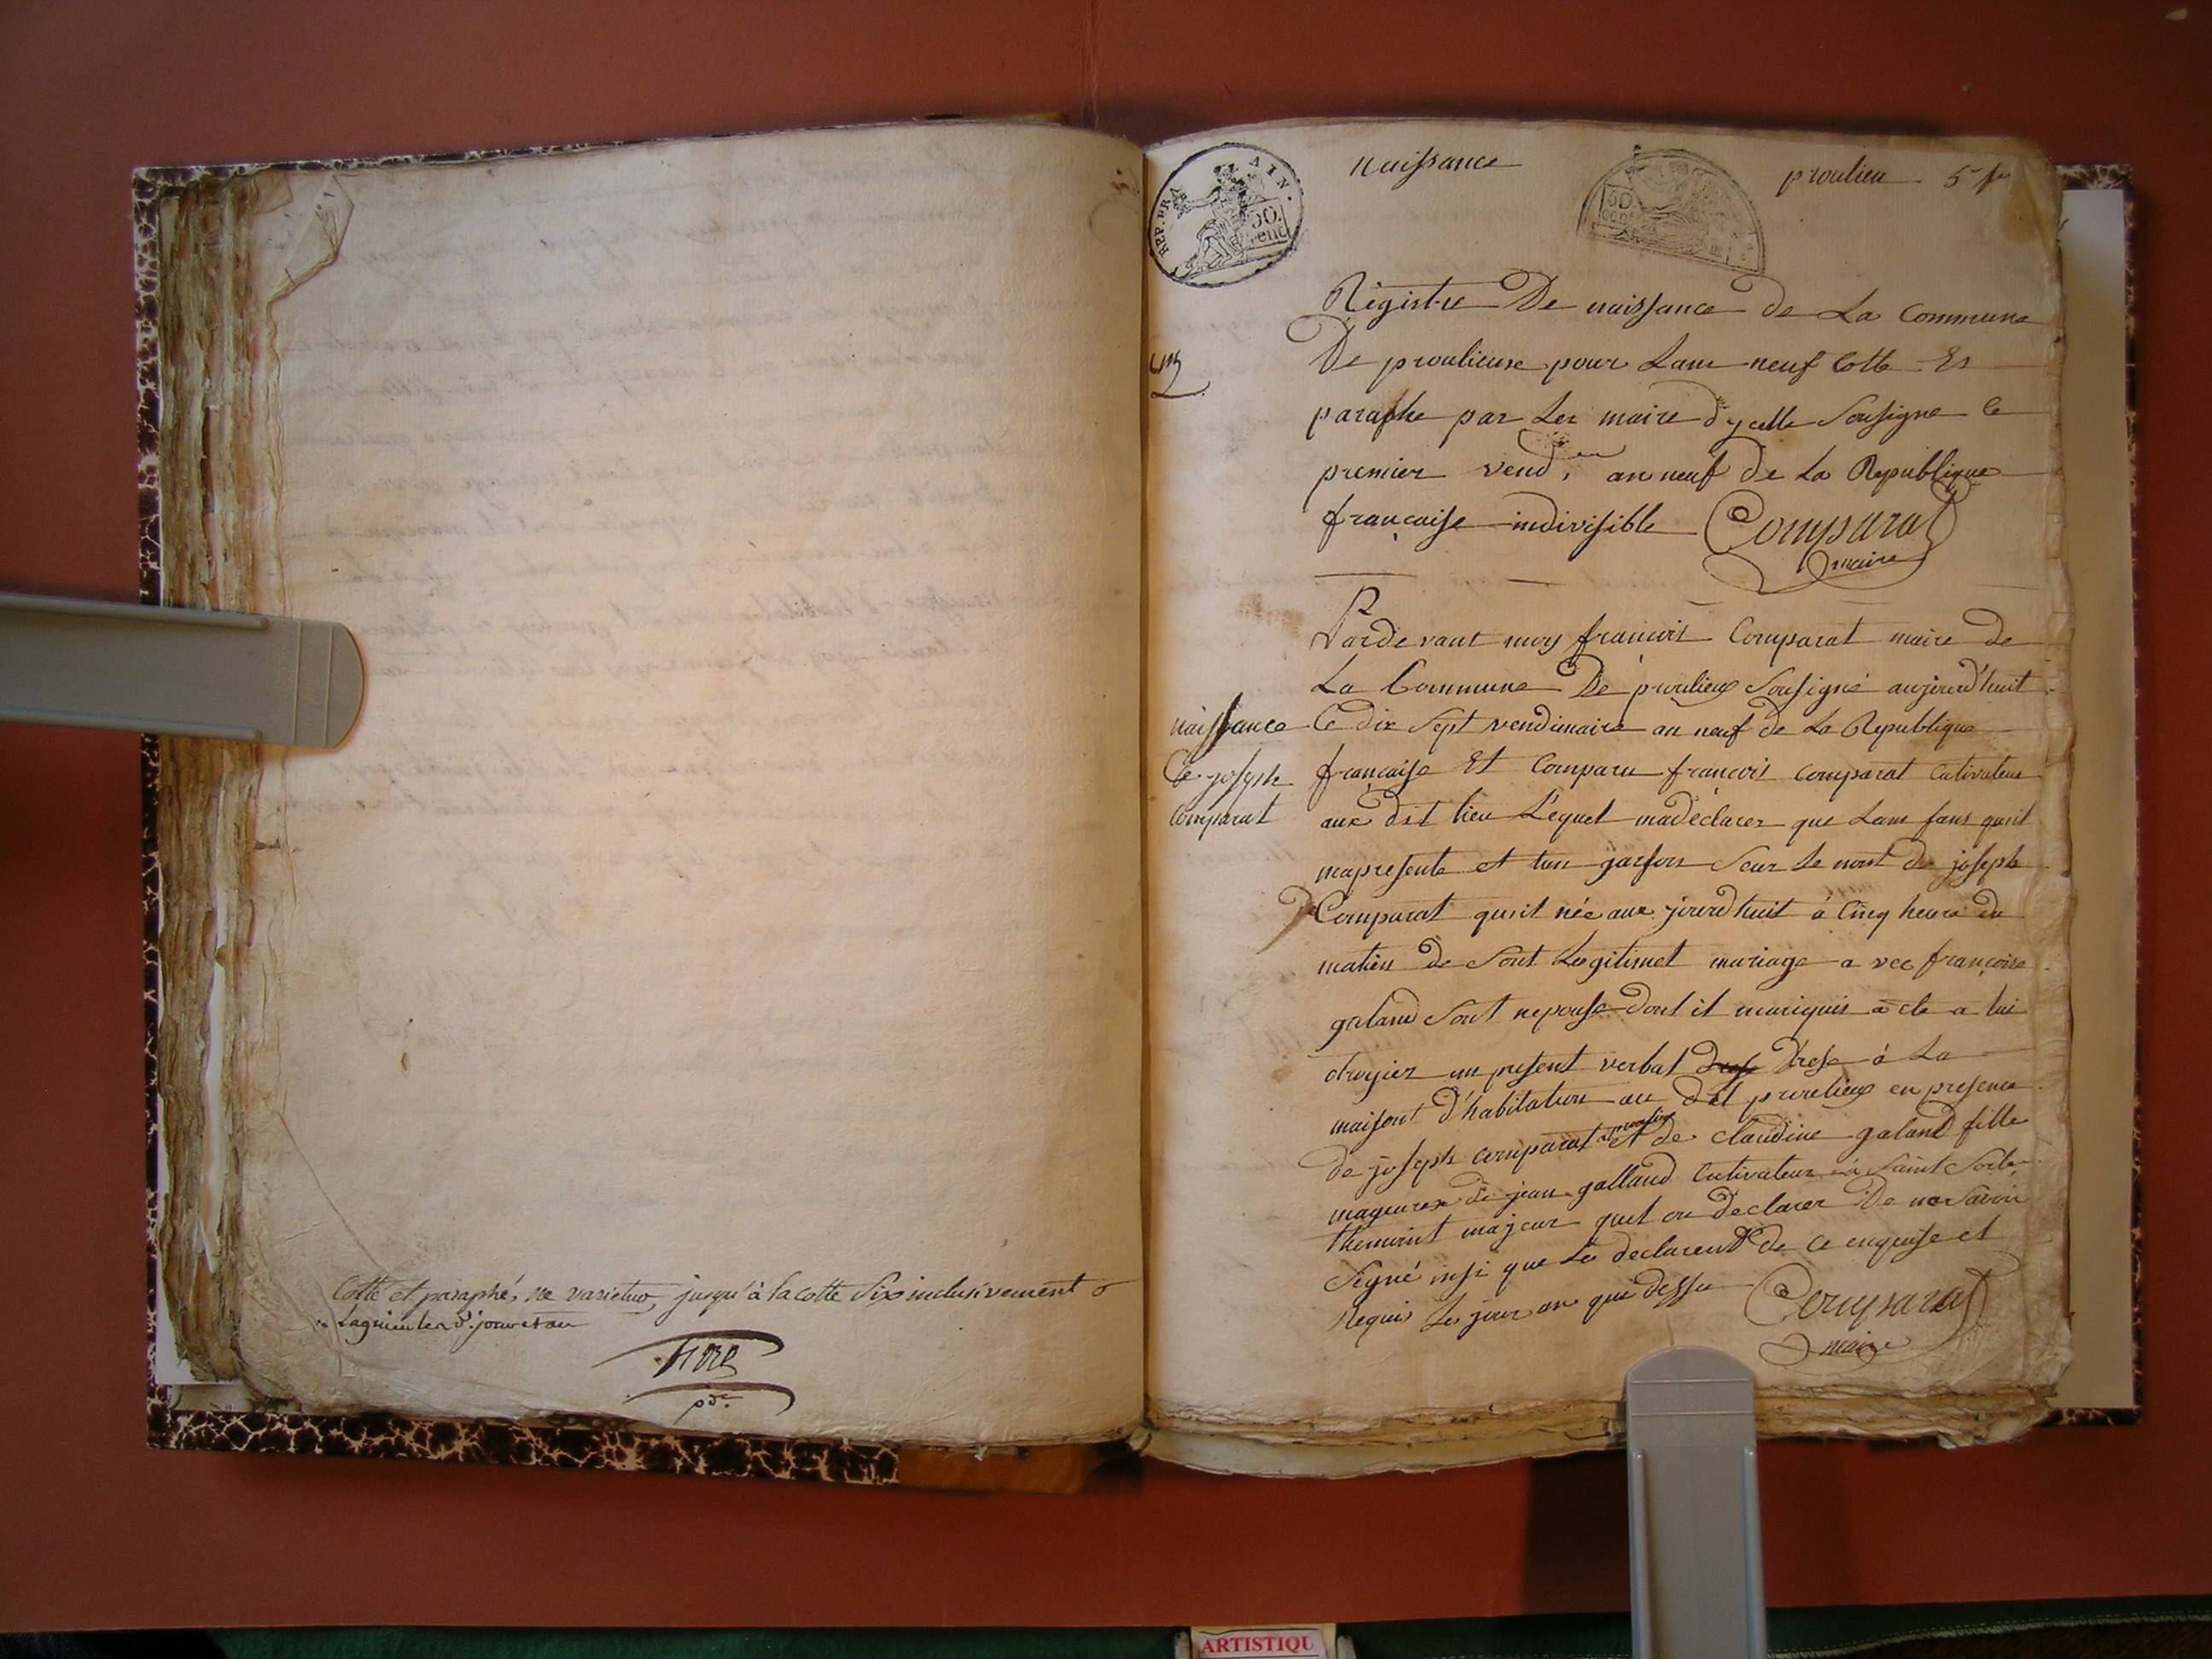 Cotté et paraphé, ne varietur, jusqu'à la cotte Six inclusivement
Lagnieu les d. jour et an
pdt.
REP. FRA AIN.
50. cent
naissance
proulieu
50 cent
Régistre De naissance de La Commune
De proulieuse pour Lanne neuf Cotte Et
paraphe par Les maire d'ycelle Sousigne le
premier vend.re an neuf de La Republique
française indivisible Comparat
maire
Pardevant moy francois Comparat maire de
La Commune De proulieux Sousigné aujourd'huit
naissance
Ce dix Sept vendimaire an neuf de La Republique
De joseph
française Et Comparu francois comparat Cutivateur
Comparat
aux dit lieu Lequel madéclarer que Lan fans quit
mapresente et tun garson Seur Le nont de joseph
Comparat quit née aux jourdhuit à Cinq heure du
matien de Sont Legitimet mariage a vec françoise
galand Sont nepouse dont il mariquis acte a lui
otroyier un present verbal drese à La
maisont d'habitation au dit proulieux en presence
de joseph comparat a proulieu et de claudine galand fille
mageurex de jean galland Cutivateur à Saint Sorlen
themoint majeur quel on declarer De ne Savoir
Signé insi que Le declarent de ce enquise et
Requis Les jour an que dessu Comparat
maire
ARTISTIQU